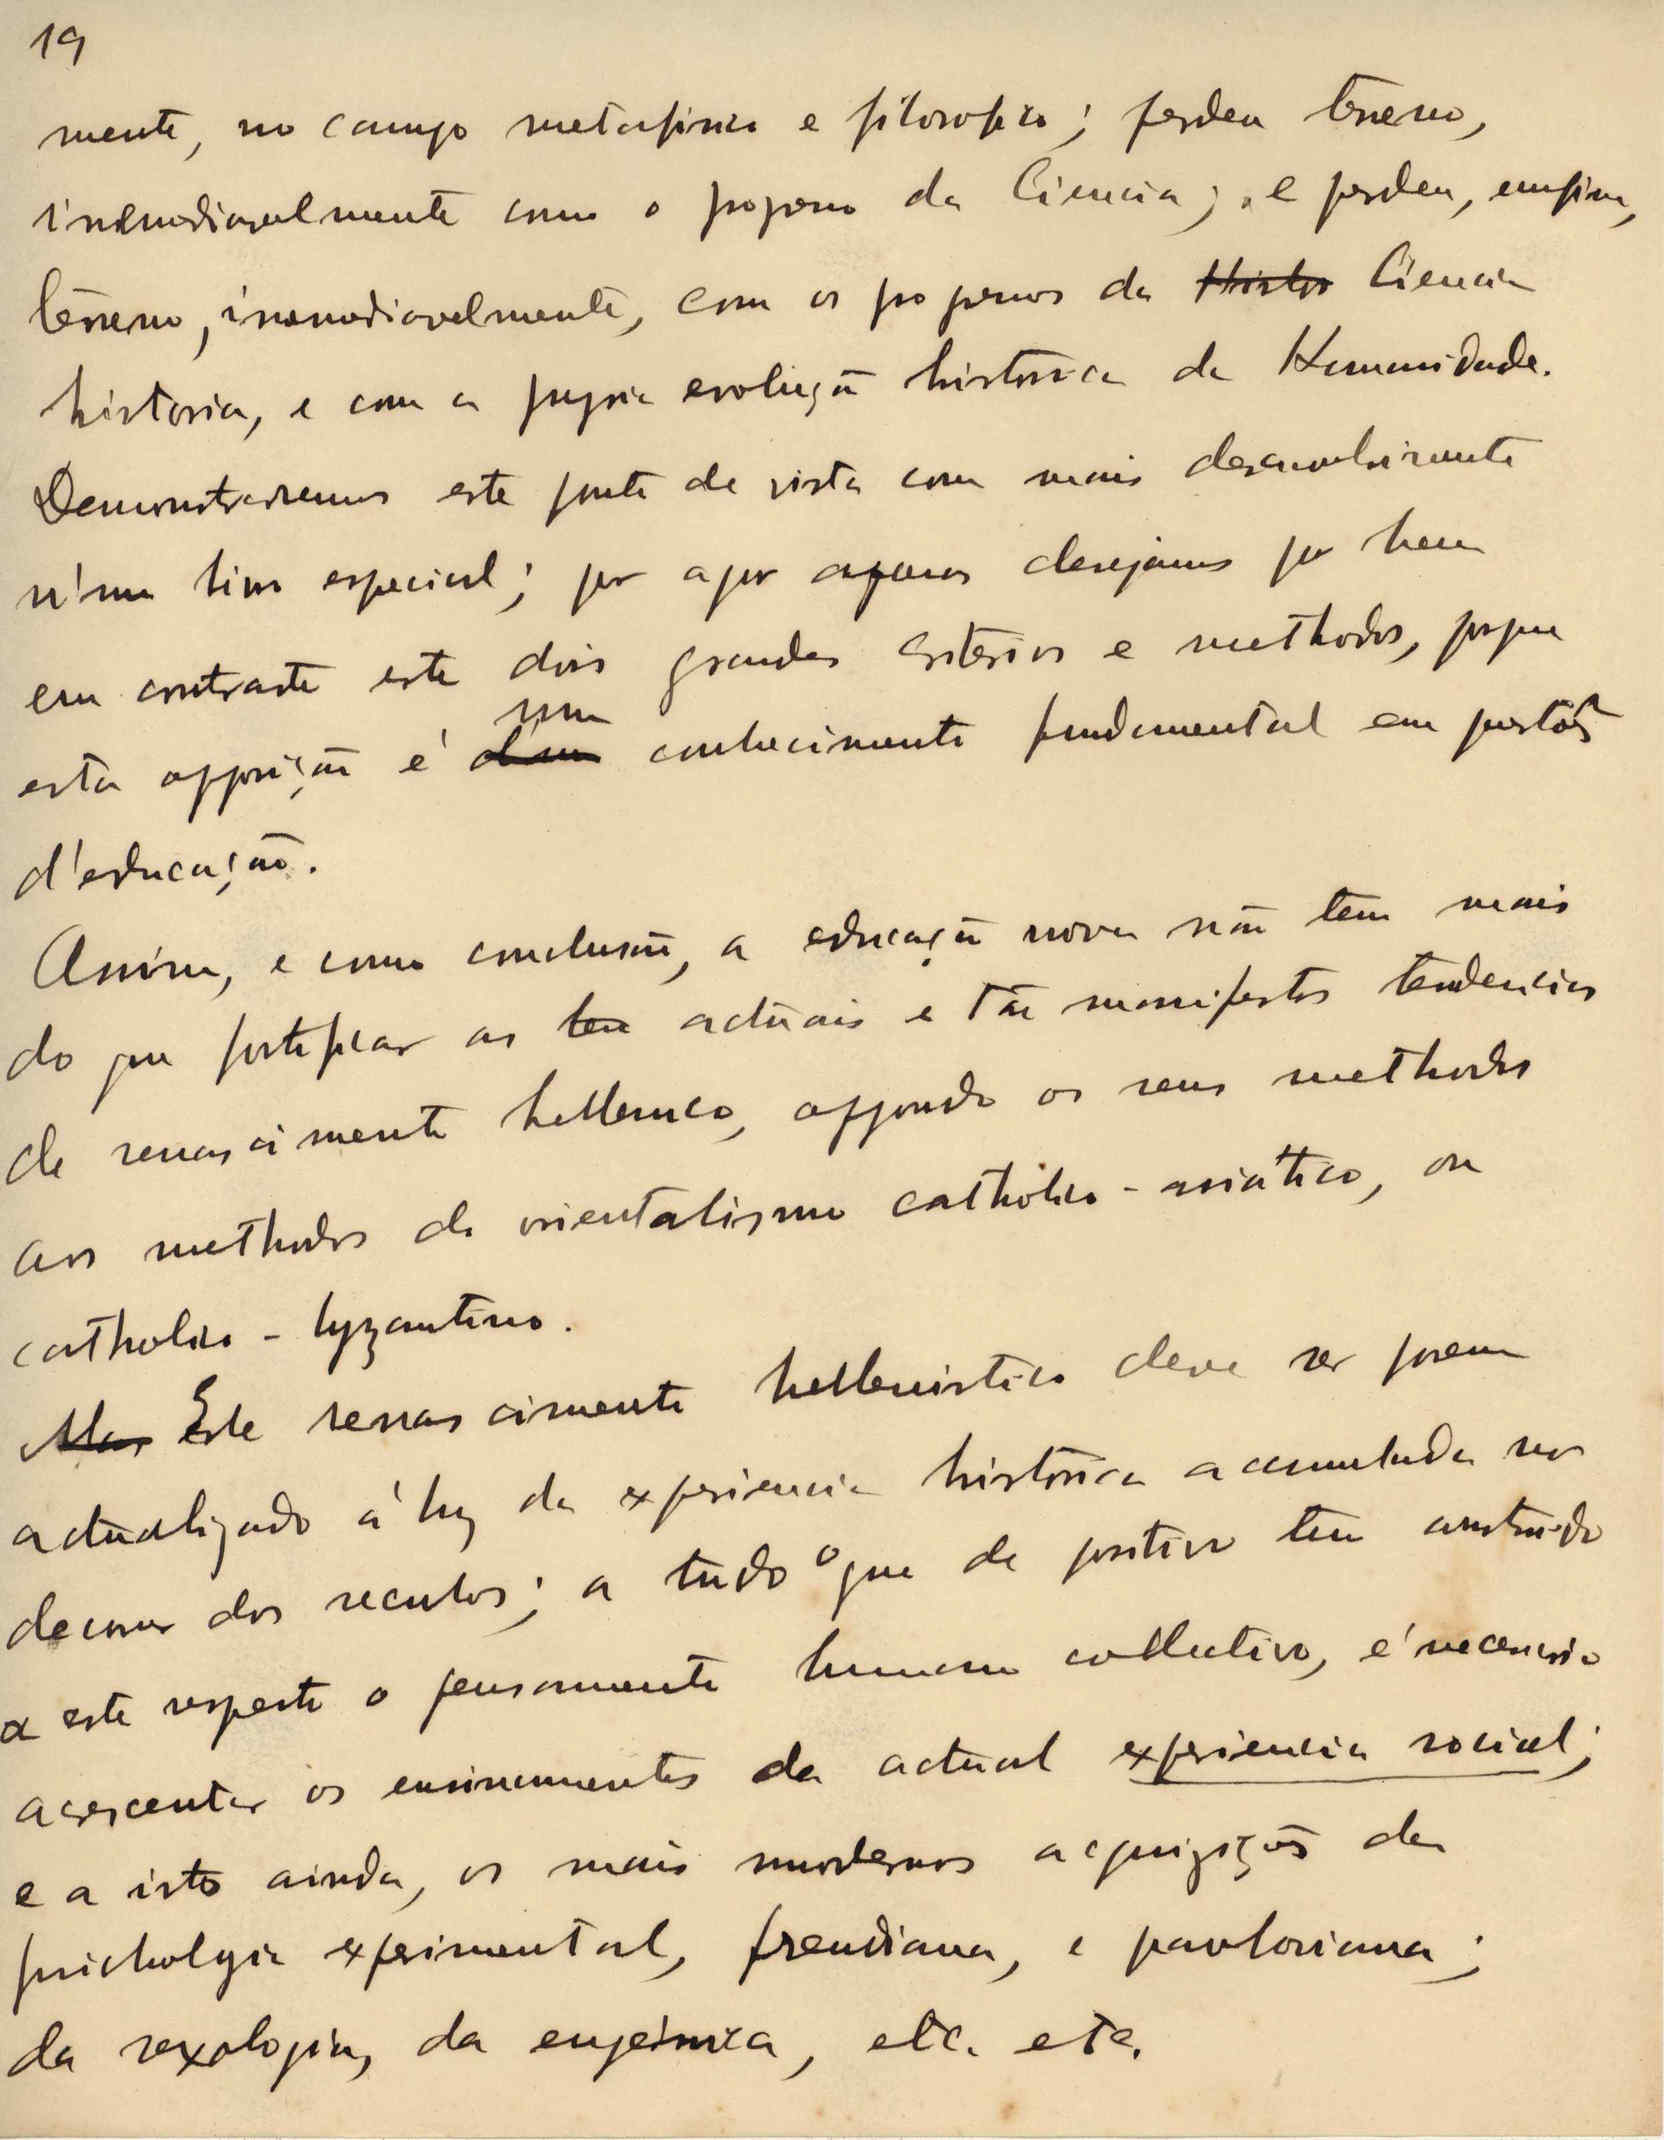 19
mente, no campo metafisico e filosofico; perdeu terreno,
irremediavelmente com o progresso da Ciencia; e perdeu, emfim,
terreno, irremediavelmente, com os progressos da Histor Ciencia
historia, e com a propria evolução histórica da Humanidade.
Demonstraremos este ponto de vista com mais desenvolvimento
n'um livro especial; por agora apenas desejamos pôr bem
em contraste este dois grandes criterios e methodos, porque
esta opposição é d'um um conhecimento fundamental em questões
d'educação.
Assim, e como conclusão, a educação nova não tem mais
do que fortificar as ten actuais e tão manifestas tendencias
de renascimento hellenico, oppondo os seus methodos
aos methodos do orientalismo catholico-asiático, ou
catholico-byzantino.
Mas Este renascimento hellenistico deve ser porem
actualizado á luz da experiencia histórica accumulada no
decorrer dos seculos; a tudo o que de positivo tem construido
a este respeito o pensamento humano collectivo, é necessario
acrescentar os ensinamentos da actual experiencia social;
e a isto ainda, as mais modernas acquizições da
psichologia experimental, freudiana, e pavloviana;
da sexologia, da eugénica, etc. etc.